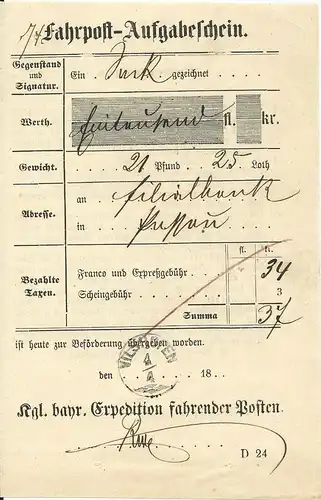 Fahrpost-Aufgabeschein.
Gegenstand und Signatur. Ein Sack gezeichnet
Werth. Eintausend fl. kr.
Gewicht. 21 Pfund 25 Loth
Adresse. an Filialbank
in Passau
fl. kr.
Bezahlte Taxen. Franco und Expreßgebühr 34
Scheingebühr 3
Summa 37
ist heute zur Beförderung übergeben worden.
VILSHOFEN
4/4
den 18
Kgl. bayr. Expedition fahrender Posten.
D 24